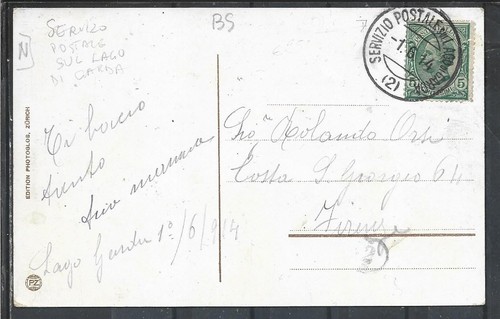 BS
N
SERVIZO
POSTALE
SUL LAGO
DI GARDA
SERVIZIO POSTALE
(2)
5
EDITION PHOTOGLOB, ZÜRICH
Ti bacio
tanto
tuo
Lago Garda 1º/6/914
Rolando Orsi
Costa S. Giorgio 64
Firenze
PZ